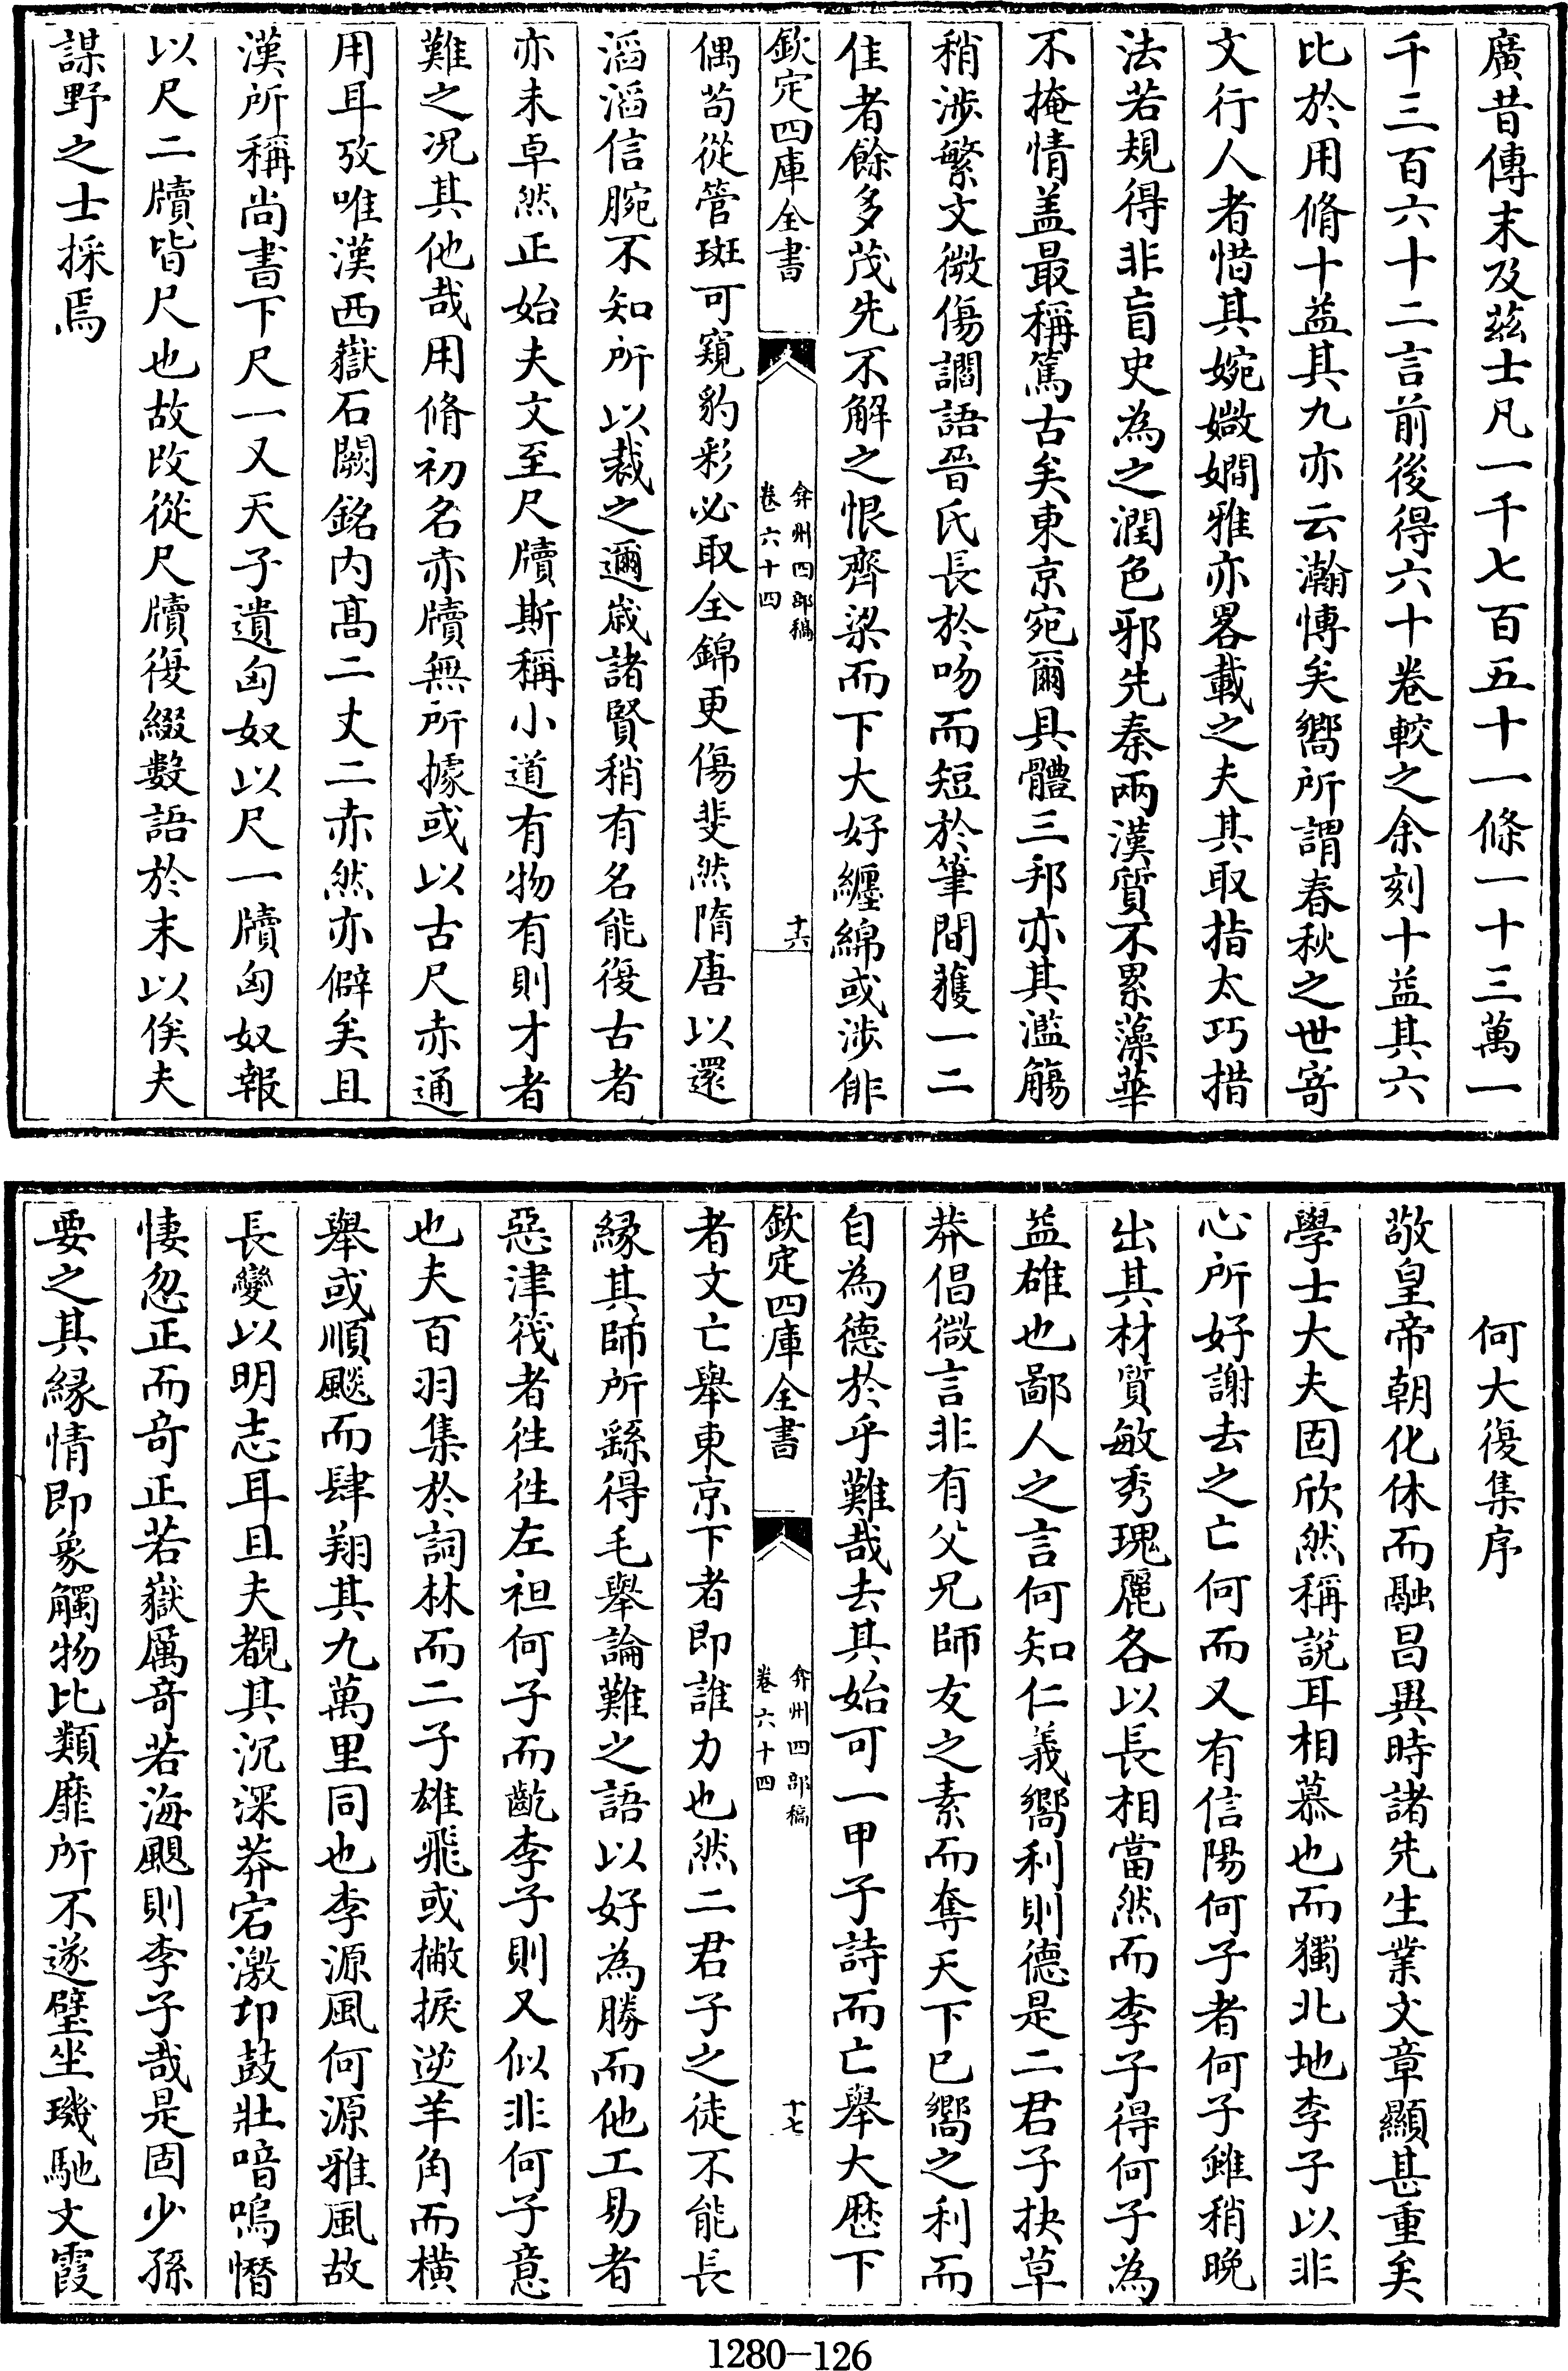 廣昔傳末及茲士凡一千七百五十一條一十三萬一
千三百六十二言前後得六十卷較之余刻十益其六
比於用脩十益其九亦云瀚愽矣嚮所謂春秋之世寄
文行人者惜其婉媺嫺雅亦畧載之夫其取指太巧措
法若規得非盲史為之潤色邪先秦兩漢質不累藻華
不掩情盖最稱篤古矣東京宛爾具體三邦亦其濫觴
稍渉繁文微傷讕語晉氏長於吻而短於筆間獲一二
佳者餘多茂先不解之恨齊梁而下大好纒綿或渉俳
欽定四庫全書
弇州四部稿
卷六十四
十六
偶茍從管斑可窺豹彩必取全錦更傷斐然隋唐以還
滔滔信腕不知所以裁之邇嵗諸賢稍有名能復古者
亦未卓然正始夫文至尺牘斯稱小道有物有則才者
難之况其他哉用脩初名赤牘無所據或以古尺赤通
用耳攷唯漢西嶽石闕銘内髙二丈二赤然亦僻矣且
漢所稱尚書下尺一又天子遺匈奴以尺一牘匈奴報
以尺二牘皆尺也故改從尺牘復綴數語於末以俟夫
謀野之士採焉
何大復集序
敬皇帝朝化休而融昌異時諸先生業文章顯甚重矣
學士大夫固欣然稱說耳相慕也而獨北地李子以非
心所好謝去之亡何而又有信陽何子者何子雖稍晩
出其材質敏秀瑰麗各以長相當然而李子得何子為
益雄也鄙人之言何知仁義嚮利則德是二君子抉草
莽倡微言非有父兄師友之素而奪天下已嚮之利而
自為德於乎難哉去其始可一甲子詩而亡舉大厯下
欽定四庫全書
弇州四部稿
卷六十四
十七
者文亡舉東京下者即誰力也然二君子之徒不能長
縁其師所繇得毛舉論難之語以好為勝而他工易者
惡津筏者徃徃左袒何子而齕李子則又似非何子意
也夫百羽集於詞林而二子雄飛或撇捩逆羊角而横
舉或順飈而肆翔其九萬里同也李源風何源雅風故
長變以明志耳且夫覩其沉深莽宕激卬鼓壯喑嗚憯
悽忽正而竒正若嶽厲竒若海颶則李子哉是固少孫
要之其縁情即象觸物比類靡所不遂璧坐璣馳文霞
1280—126